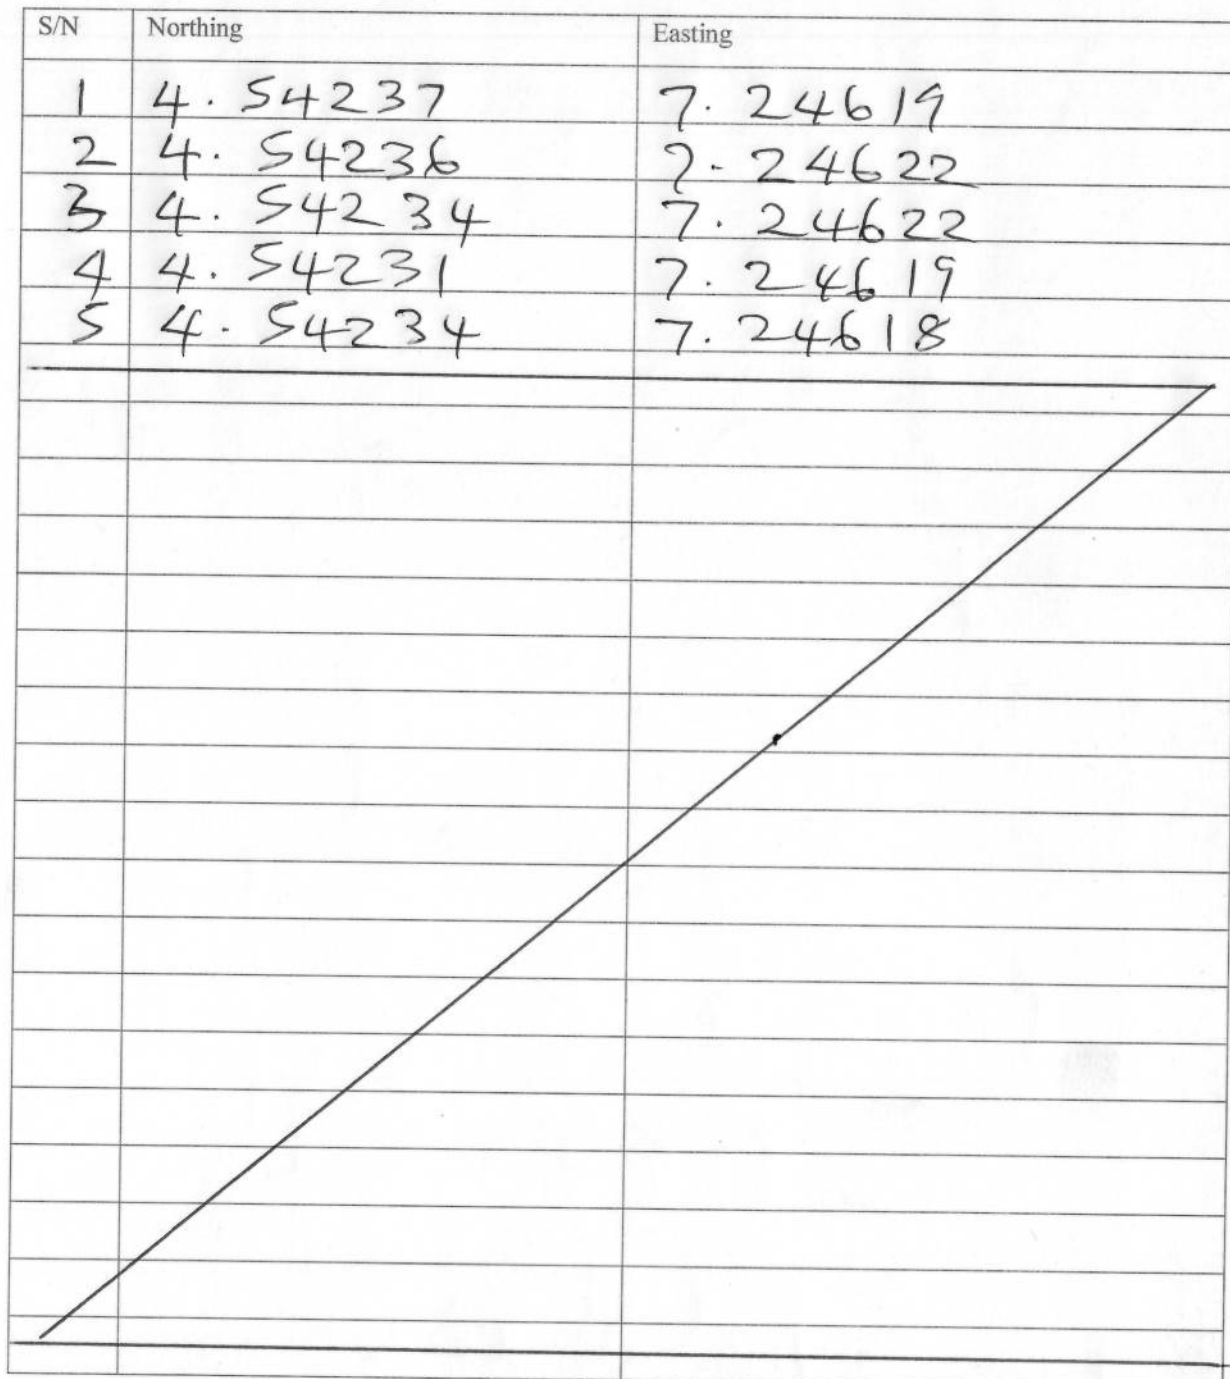 S/N Northing Easting
1 4. 54237 7. 24619
2 4. 54236 7. 24622
3 4. 54234 7. 24622
4 4. 54231 7. 24619
5 4. 54234 7. 24618